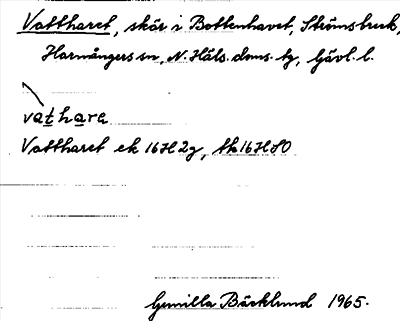 Vattharet, skär i Bottenhavet, Strömsbruk,
Harmångers sn, N. Häls. doms. tg, Gävl. l.
vathare
Vattharet ek 16H2g, tk 16HSO
Gunilla Bäcklund 1965.